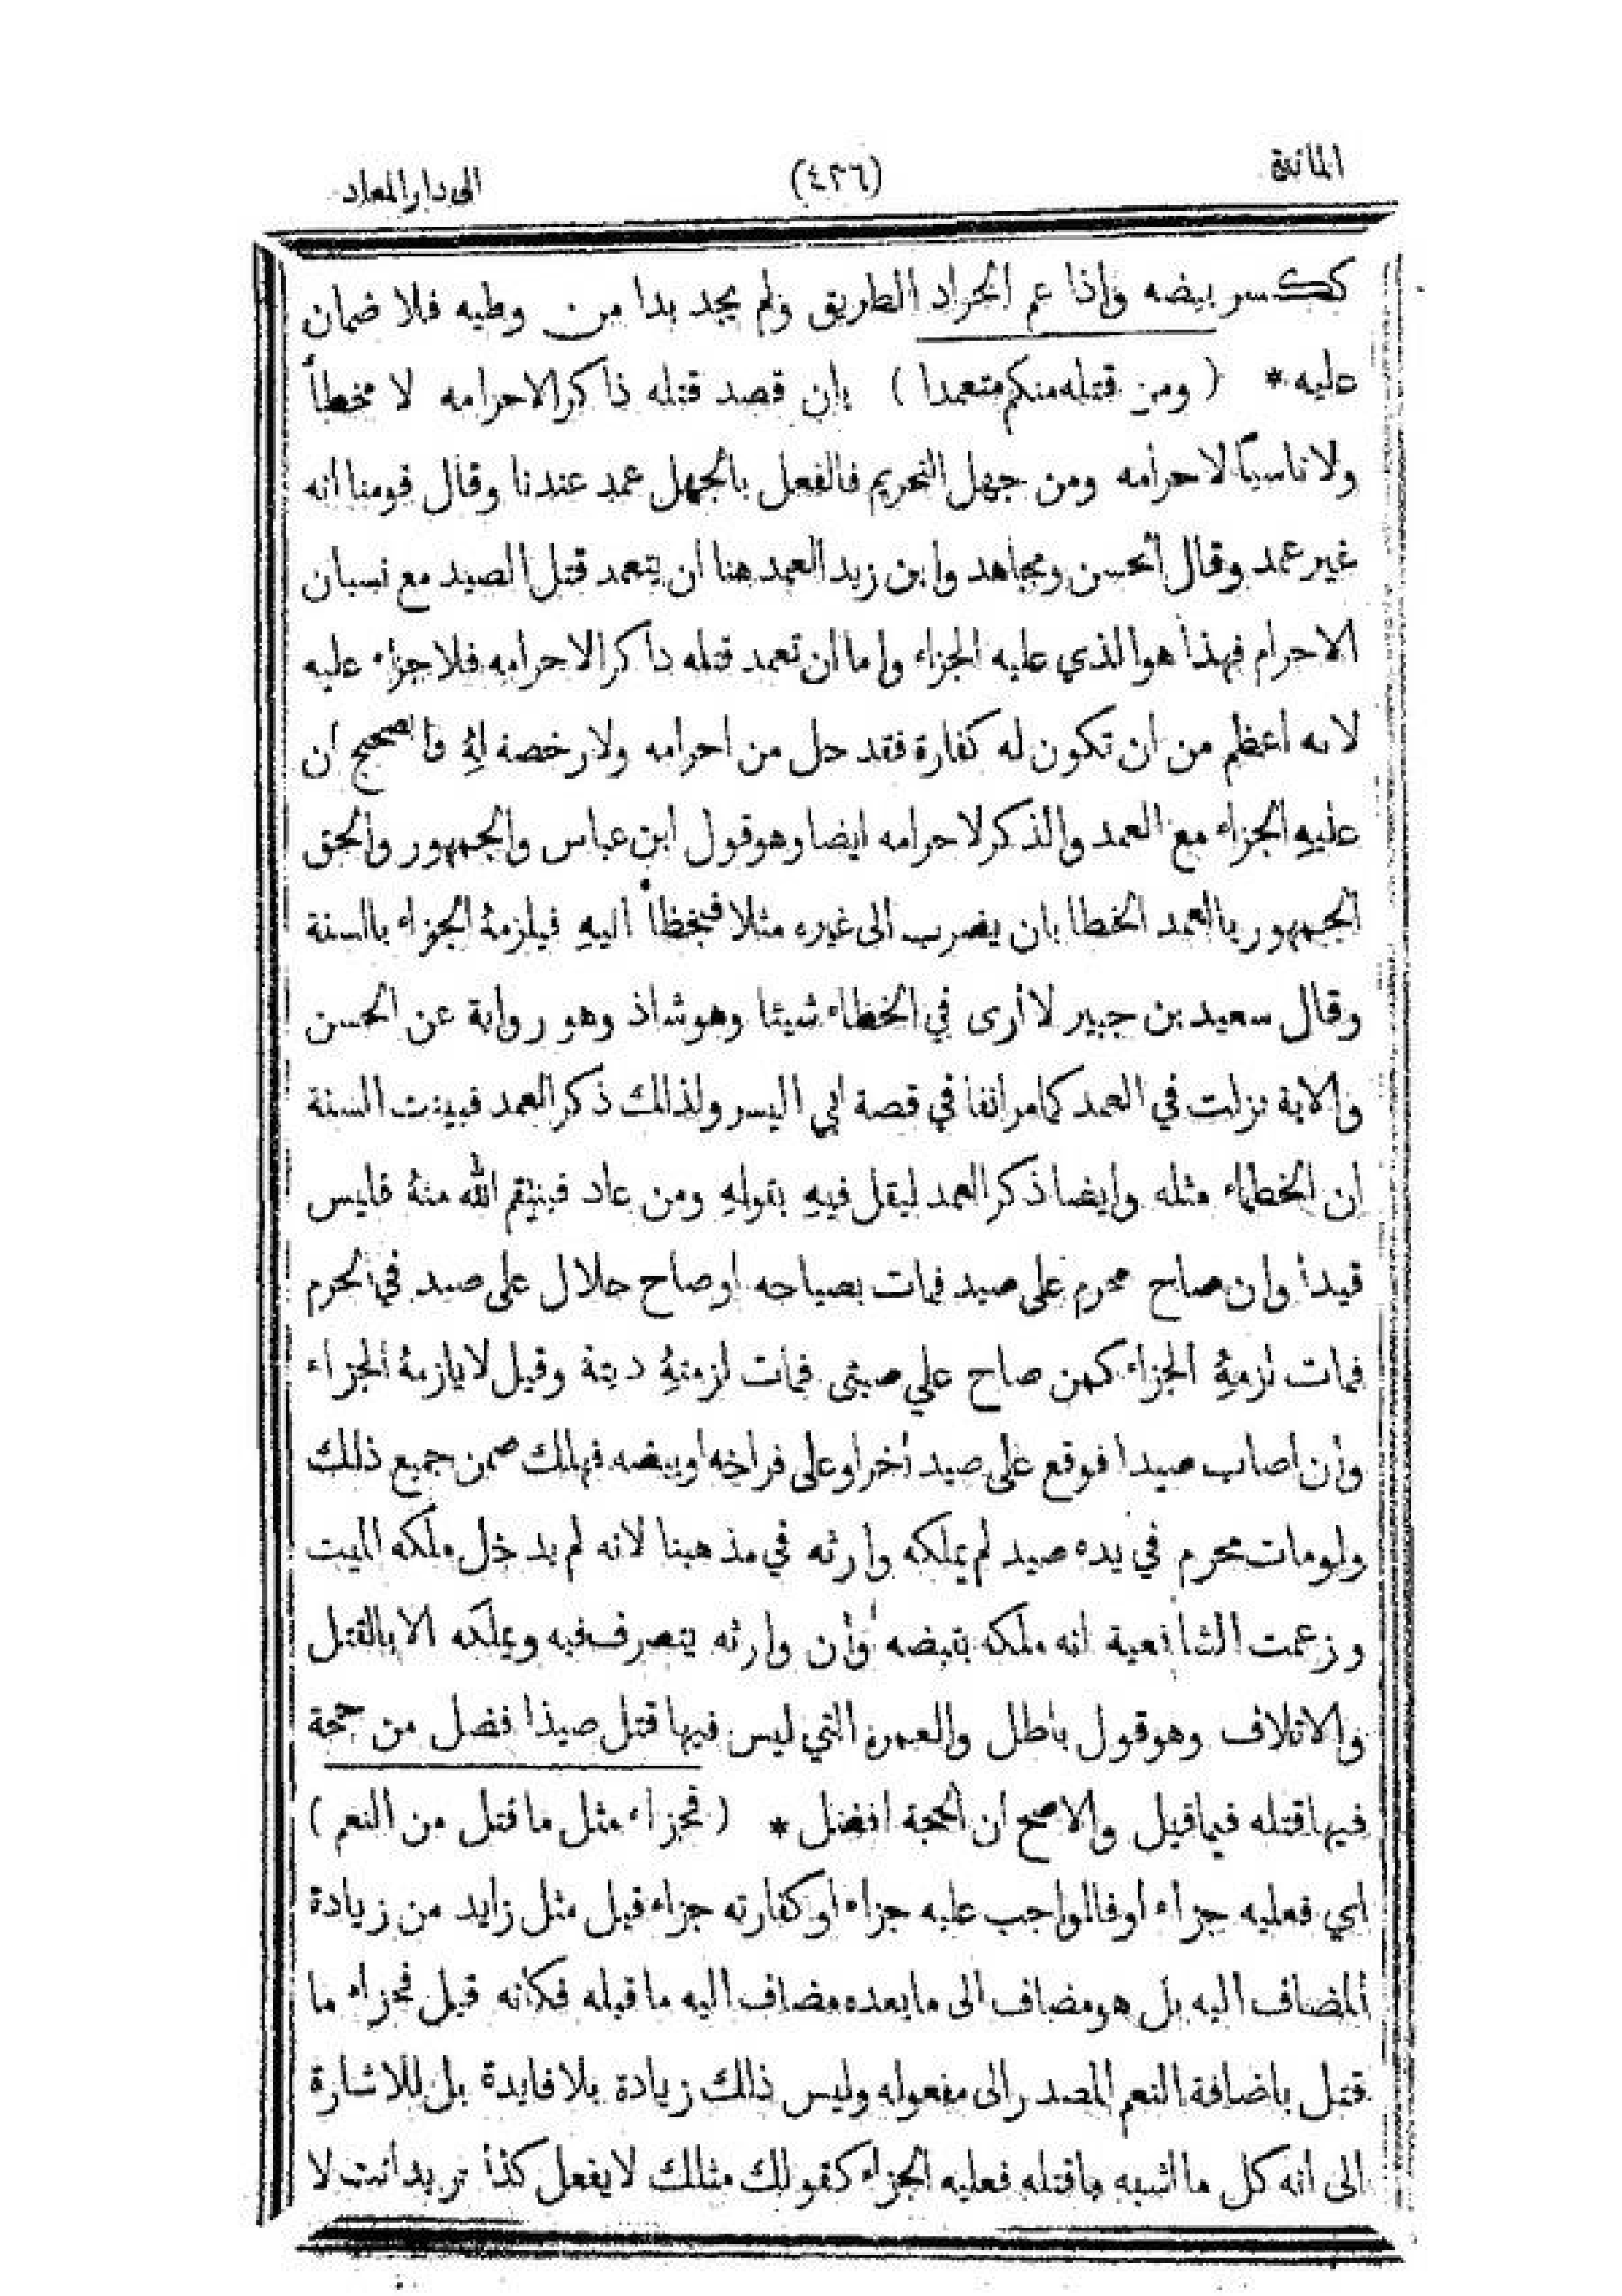 المائدة (٤٢٦) الى دار المعاد
ككسر بيضه واذا عم الجراد الطريق ولم يجد بدا من وطيه فلا ضمان
عليه * (ومن قتله منكم متعمدا) بان قصد قتله ذاكرا لاحرامه لا مخطأ
ولا ناسيا لاحرامه ومن جهل التحريم فالفعل بالجهل عمد عندنا وقال قومنا انه
غير عمد وقال الحسن ومجاهد وابن زيد العمد هنا ان يتعمد قتل الصيد مع نسيان
الاحرام فهذا هو الذي عليه الجزاء واما ان تعمد قتله ذاكرا لاحرامه فلا جزاء عليه
لانه اعظم من ان تكون له كفارة فقد حل من احرامه ولا رخصة له والصحيح ان
عليه الجزاء مع العمد والذكر لاحرامه ايضا وهو قول ابن عباس والجمهور والحق
الجمهور بالعمد الخطا بان يضرب الى غيره مثلا فيخطأ اليه فيلزمه الجزاء بالسنة
وقال سعيد بن جبير لا أرى في الخطاء شيئا وهو شاذ وهو رواية عن الحسن
والاية نزلت في العمد كما مر انفا في قصة ابي اليسر ولذلك ذكر العمد فبينت السنة
ان الخطاء مثله وايضا ذكر العمد ليقل فيه بقوله ومن عاد فينتقم الله منه فليس
قيدا وان صاح محرم على صيد فمات بصياحه او صاح حلال على صيد في الحرم
فمات لزمه الجزاء كمن صاح علي صبثى فمات لزمته ديتة وقيل لا يلزمه الجزاء
وان اصاب صيدا فوقع على صيد أخر او على فراخه او بيضه فهلك ضمن جميع ذلك
ولو مات محرم في يده صيد لم يملكه وارثه في مذهبنا لانه لم يدخل ملكه الميت
وزعمت الشافعية انه ملكه بقبضه وأن وارثه يتصرف فيه ويملكه الا بالقتل
والاتلاف وهو قول باطل والعمرة التي ليس فيها قتل صيذا فضل من حجة
فيها قتله فيما قيل والاصح ان الحجة افضل * (فجزاء مثل ما قتل من النعم)
اي فعليه جزاء أو فالواجب عليه جزاء او كفارته جزاء قيل مثل زايد من زيادة
المضاف اليه بل هو مضاف الى ما بعده مضاف اليه ما قبله فكانه قيل فجزاء ما
قتل باضافة النعم المصدر الى مفعوله وليس ذلك زيادة بلا فايدة بل للاشارة
الى انه كل ما اشبه ما قتله فعليه الجزاء كقولك مثلك لا يفعل كذا تريد انت لا